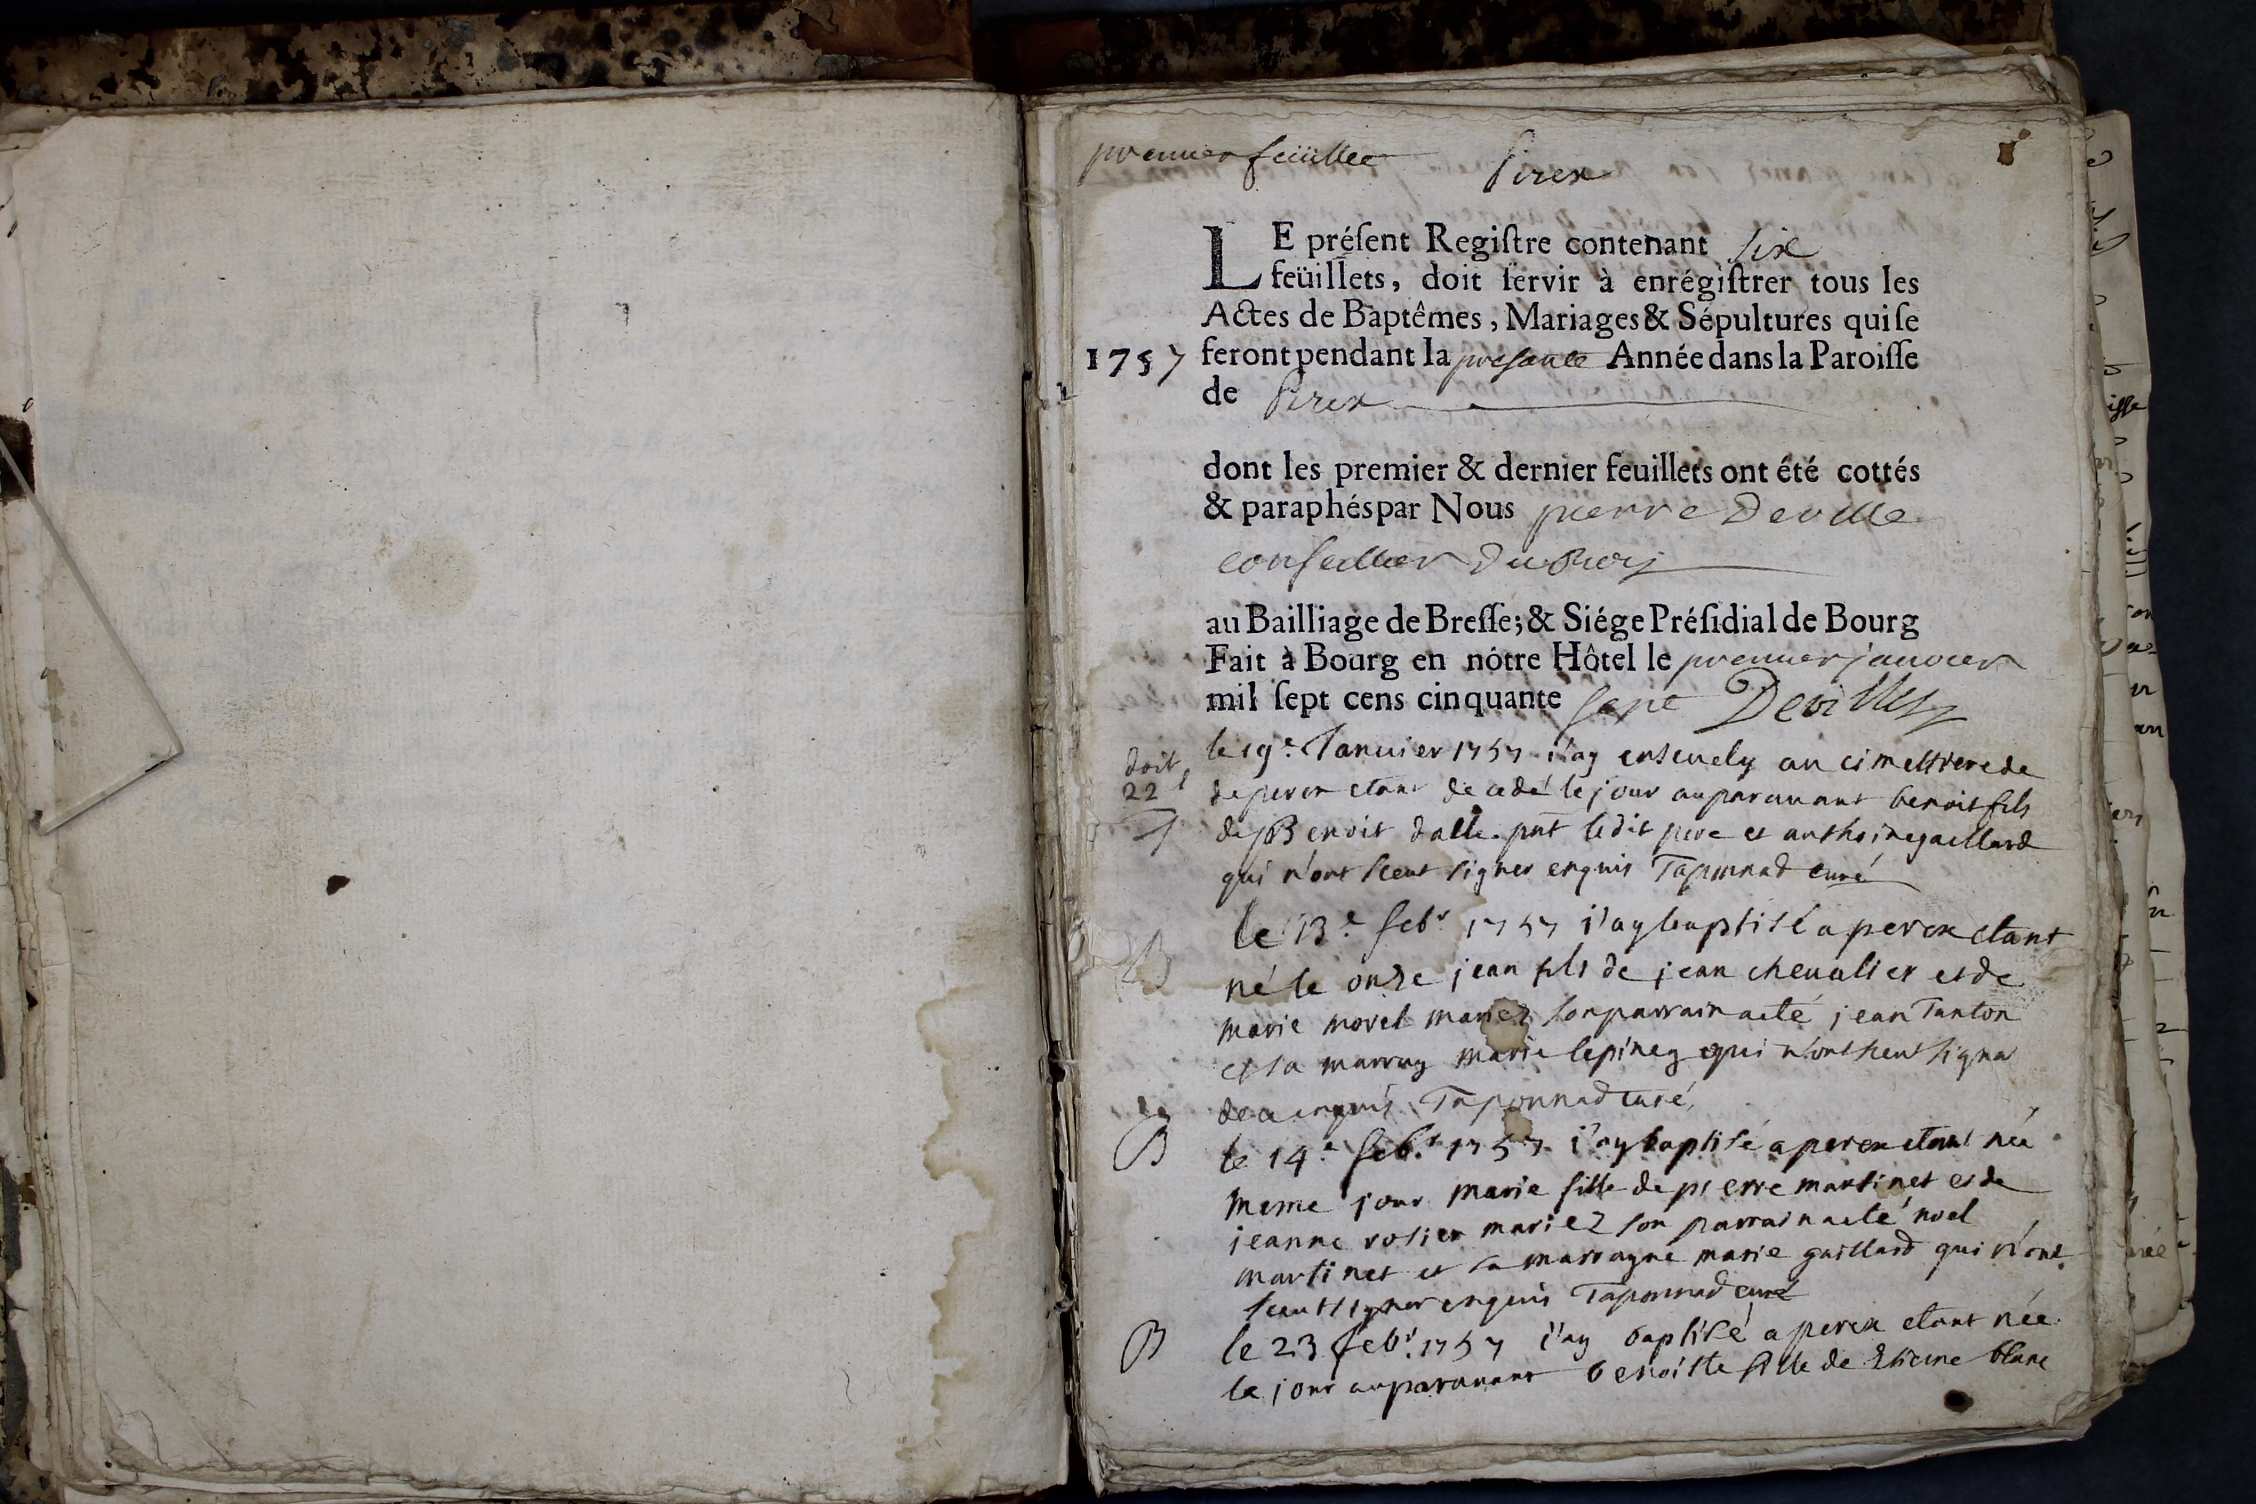 premier feüillet
Perex
LE préſent Regiſtre contenant six
feüillets, doit ſervir à enrégiſtrer tous les
Actes de Baptêmes, Mariages & Sépultures qui ſe
1757 feront pendant la presante Année dans la Paroiſſe
de Perex
dont les premier & dernier feuillets ont été cottés
& paraphés par Nous pierre Deville
conseiller du Roy
au Bailliage de Breſſe; & Siége Préſidial de Bourg
Fait à Bourg en nôtre Hôtel le premier janvier
mil ſept cens cinquante sept Deville
doit
22 s
le 19e Janvier 1757 i'ay ensevely au cimettiere de
de perex etant decedé le jour auparavant benoit fils
de Benoit dalle pnt ledit pere et anthoine gaillard
qui n'ont sceut signer enquis Taponnad curé
B
le 13e febr 1757 i'ay baptisé a perex etant
né le onze jean fils de jean chevalier et de
marie morel mariez son parrain a eté jean Tanton
et sa marray marie lepiney qui n'ont sceut signer
de ce enquis Taponnad curé
B
le 14e febr 1757 i'ay baptisé a perex etant née
meme jour marie fille de pierre martinet et de
jeanne rosier mariez son parrain a eté noel
martinet et sa marrayne marie gaillard qui n'ont
sceut signer enquis Taponnad curé
B
le 23 febr 1757 i'ay baptisé a perex etant née
le jour auparavant benoitte fille de Etiene blanc